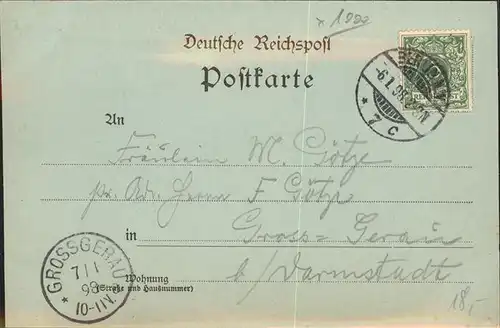 Deutsche Reichspost
Postkarte
REICHSPOST
An
Fräulein M. Götze
pr. Adr. Herrn F Götze
in Gross-Gerau
b/ Darmstadt
Wohnung
(Straße und Hausnummer)
GROSSGERAU
7/1
98
10-11V.
*
BERLIN
-6.1.98.
* 2 c
18,-